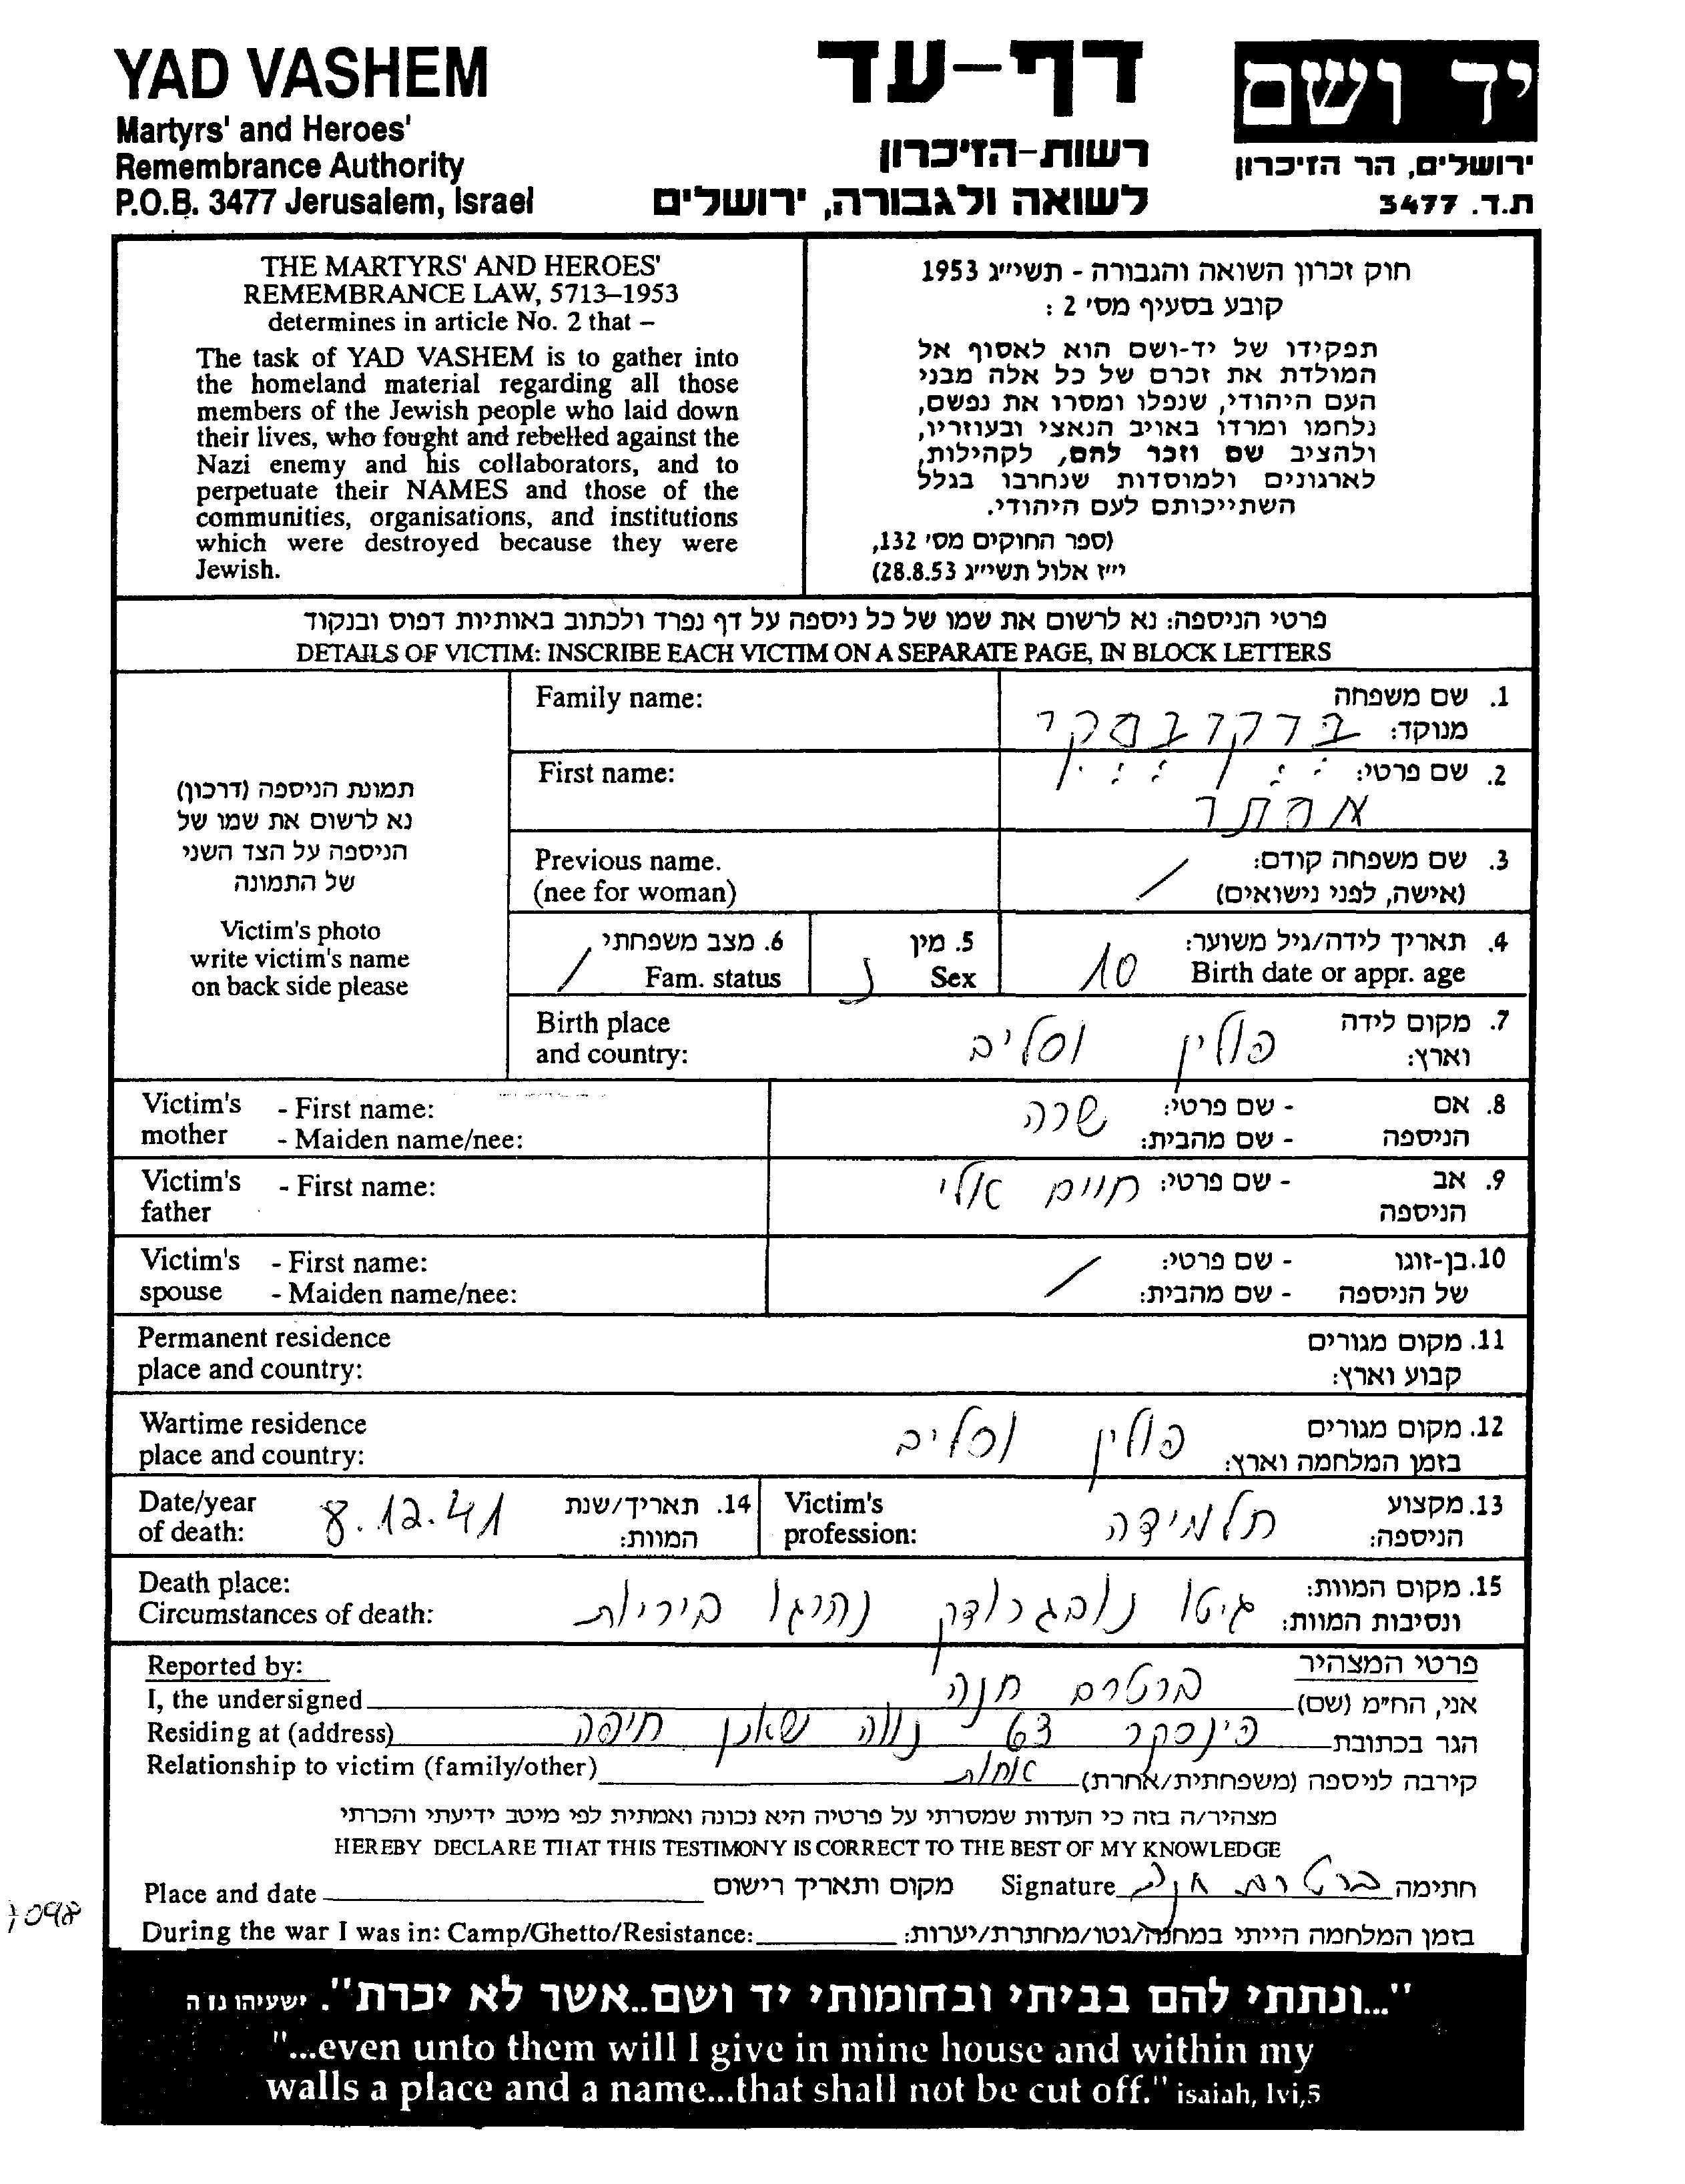 YAD VASHEM
Martyrs' and Heroes'
Remembrance Authority
P.O.B. 3477 Jerusalem, Israel
דף-עד
רשות-הזיכרון
לשואה ולגבורה, ירושלים
יד ושם
ירושלים, הר הזיכרון
ת.ד. 3477
THE MARTYRS' AND HEROES'
REMEMBRANCE LAW, 5713–1953
determines in article No. 2 that –
The task of YAD VASHEM is to gather into
the homeland material regarding all those
members of the Jewish people who laid down
their lives, who fought and rebelled against the
Nazi enemy and his collaborators, and to
perpetuate their NAMES and those of the
communities, organisations, and institutions
which were destroyed because they were
Jewish.
חוק זכרון השואה והגבורה - תשי״ג 1953
קובע בסעיף מס' 2 :
תפקידו של יד-ושם הוא לאסוף אל
המולדת את זכרם של כל אלה מבני
העם היהודי, שנפלו ומסרו את נפשם,
נלחמו ומרדו באויב הנאצי ובעוזריו,
ולהציב שם וזכר להם, לקהילות,
לארגונים ולמוסדות שנחרבו בגלל
השתייכותם לעם היהודי.
(ספר החוקים מס' 132,
י״ז אלול תשי״ג 28.8.53)
פרטי הניספה: נא לרשום את שמו של כל ניספה על דף נפרד ולכתוב באותיות דפוס ובנקוד
DETAILS OF VICTIM: INSCRIBE EACH VICTIM ON A SEPARATE PAGE, IN BLOCK LETTERS
תמונת הניספה (דרכון)
נא לרשום את שמו של
הניספה על הצד השני
של התמונה
Victim's photo
write victim's name
on back side please
Family name:
1. שם משפחה
מנוקד: ברקובסקי
First name:
2. שם פרטי:
אסתר
Previous name.
(nee for woman)
3. שם משפחה קודם:
(אישה, לפני נישואים) /
4. תאריך לידה/גיל משוער:
Birth date or appr. age 10
5. מין
Sex נ
6. מצב משפחתי
Fam. status /
Birth place
and country:
7. מקום לידה
וארץ: פולין וסליב
Victim's mother
- First name:
- Maiden name/nee:
8. אם הניספה
- שם פרטי: שרה
- שם מהבית:
Victim's father
- First name:
9. אב הניספה
- שם פרטי: חיים אלי
Victim's spouse
- First name:
- Maiden name/nee:
10. בן-זוגו של הניספה
- שם פרטי: /
- שם מהבית:
Permanent residence
place and country:
11. מקום מגורים
קבוע וארץ:
Wartime residence
place and country:
12. מקום מגורים
בזמן המלחמה וארץ: פולין וסליב
Victim's profession:
13. מקצוע
הניספה: תלמידה
Date/year
of death:
14. תאריך/שנת
המוות: 8.12.41
Death place:
Circumstances of death:
15. מקום המוות:
ונסיבות המוות: גיטו נובגרודק נהרגו ביריות
Reported by:
פרטי המצהיר
I, the undersigned
אני, הח״מ (שם) ברטרם חנה
Residing at (address)
הגר בכתובת פינסקר 63 נווה שאנן חיפה
Relationship to victim (family/other)
קירבה לניספה (משפחתית/אחרת) אחות
מצהיר/ה בזה כי העדות שמסרתי על פרטיה היא נכונה ואמתית לפי מיטב ידיעתי והכרתי
HEREBY DECLARE THAT THIS TESTIMONY IS CORRECT TO THE BEST OF MY KNOWLEDGE
Place and date
מקום ותאריך רישום
Signature
חתימה ברטרם חנה
During the war I was in: Camp/Ghetto/Resistance:
בזמן המלחמה הייתי במחנה/גטו/מחתרת/יערות:
"...ונתתי להם בביתי ובחומותי יד ושם..אשר לא יכרת". ישעיהו נו ה
"...even unto them will I give in mine house and within my
walls a place and a name...that shall not be cut off." isaiah, lvi,5